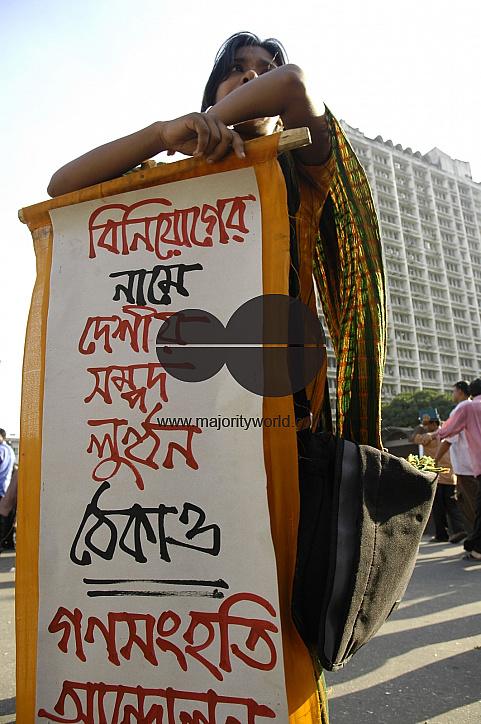 বিনিয়োগের
নামে
দেশীয়
সম্পদ
www.majorityworld.co
লুন্ঠন
ঠেকাও
গণসংহতি
আন্দোলন